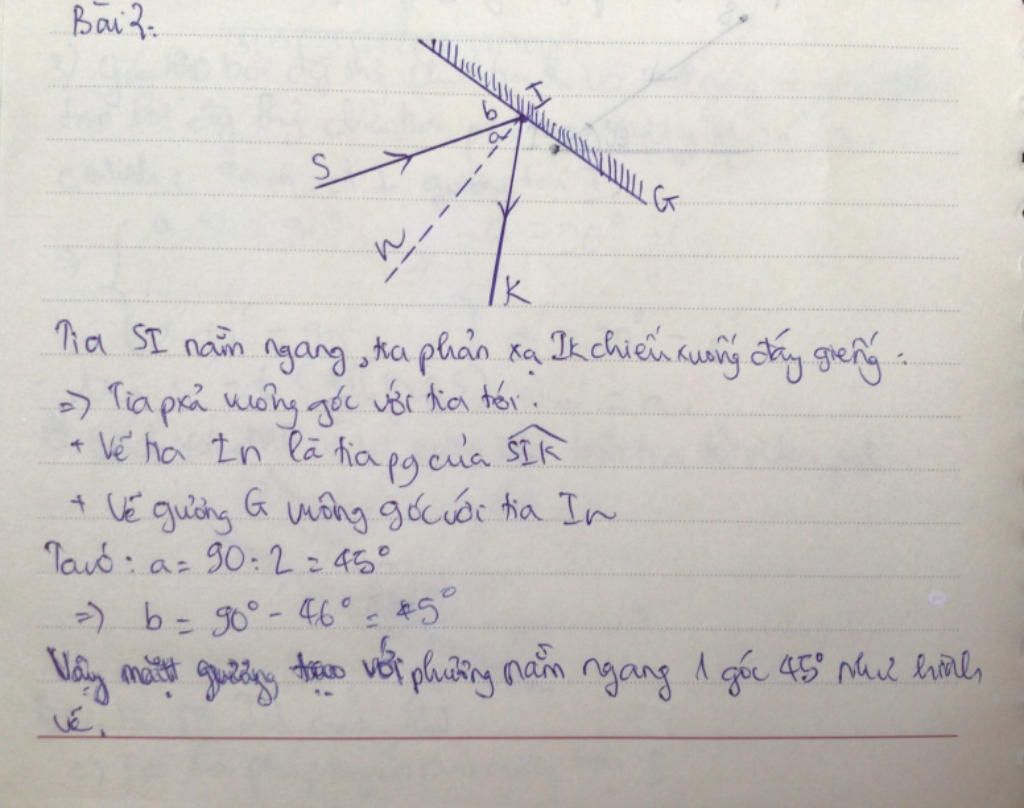 Bài 2:
I
b
a
S
G
n
K
Tia SI nằm ngang, tia phản xạ IK chiếu xuống đáy giếng.
=> Tia pxả vuông góc với tia tới.
+ Vẽ tia In là tia pg của SIK
+ Vẽ gương G vuông góc với tia In
Ta có: a = 90 : 2 = 45°
=> b = 90° - 46° = 45°
Vậy mặt gương tạo với phương nằm ngang 1 góc 45° như hình
vẽ.